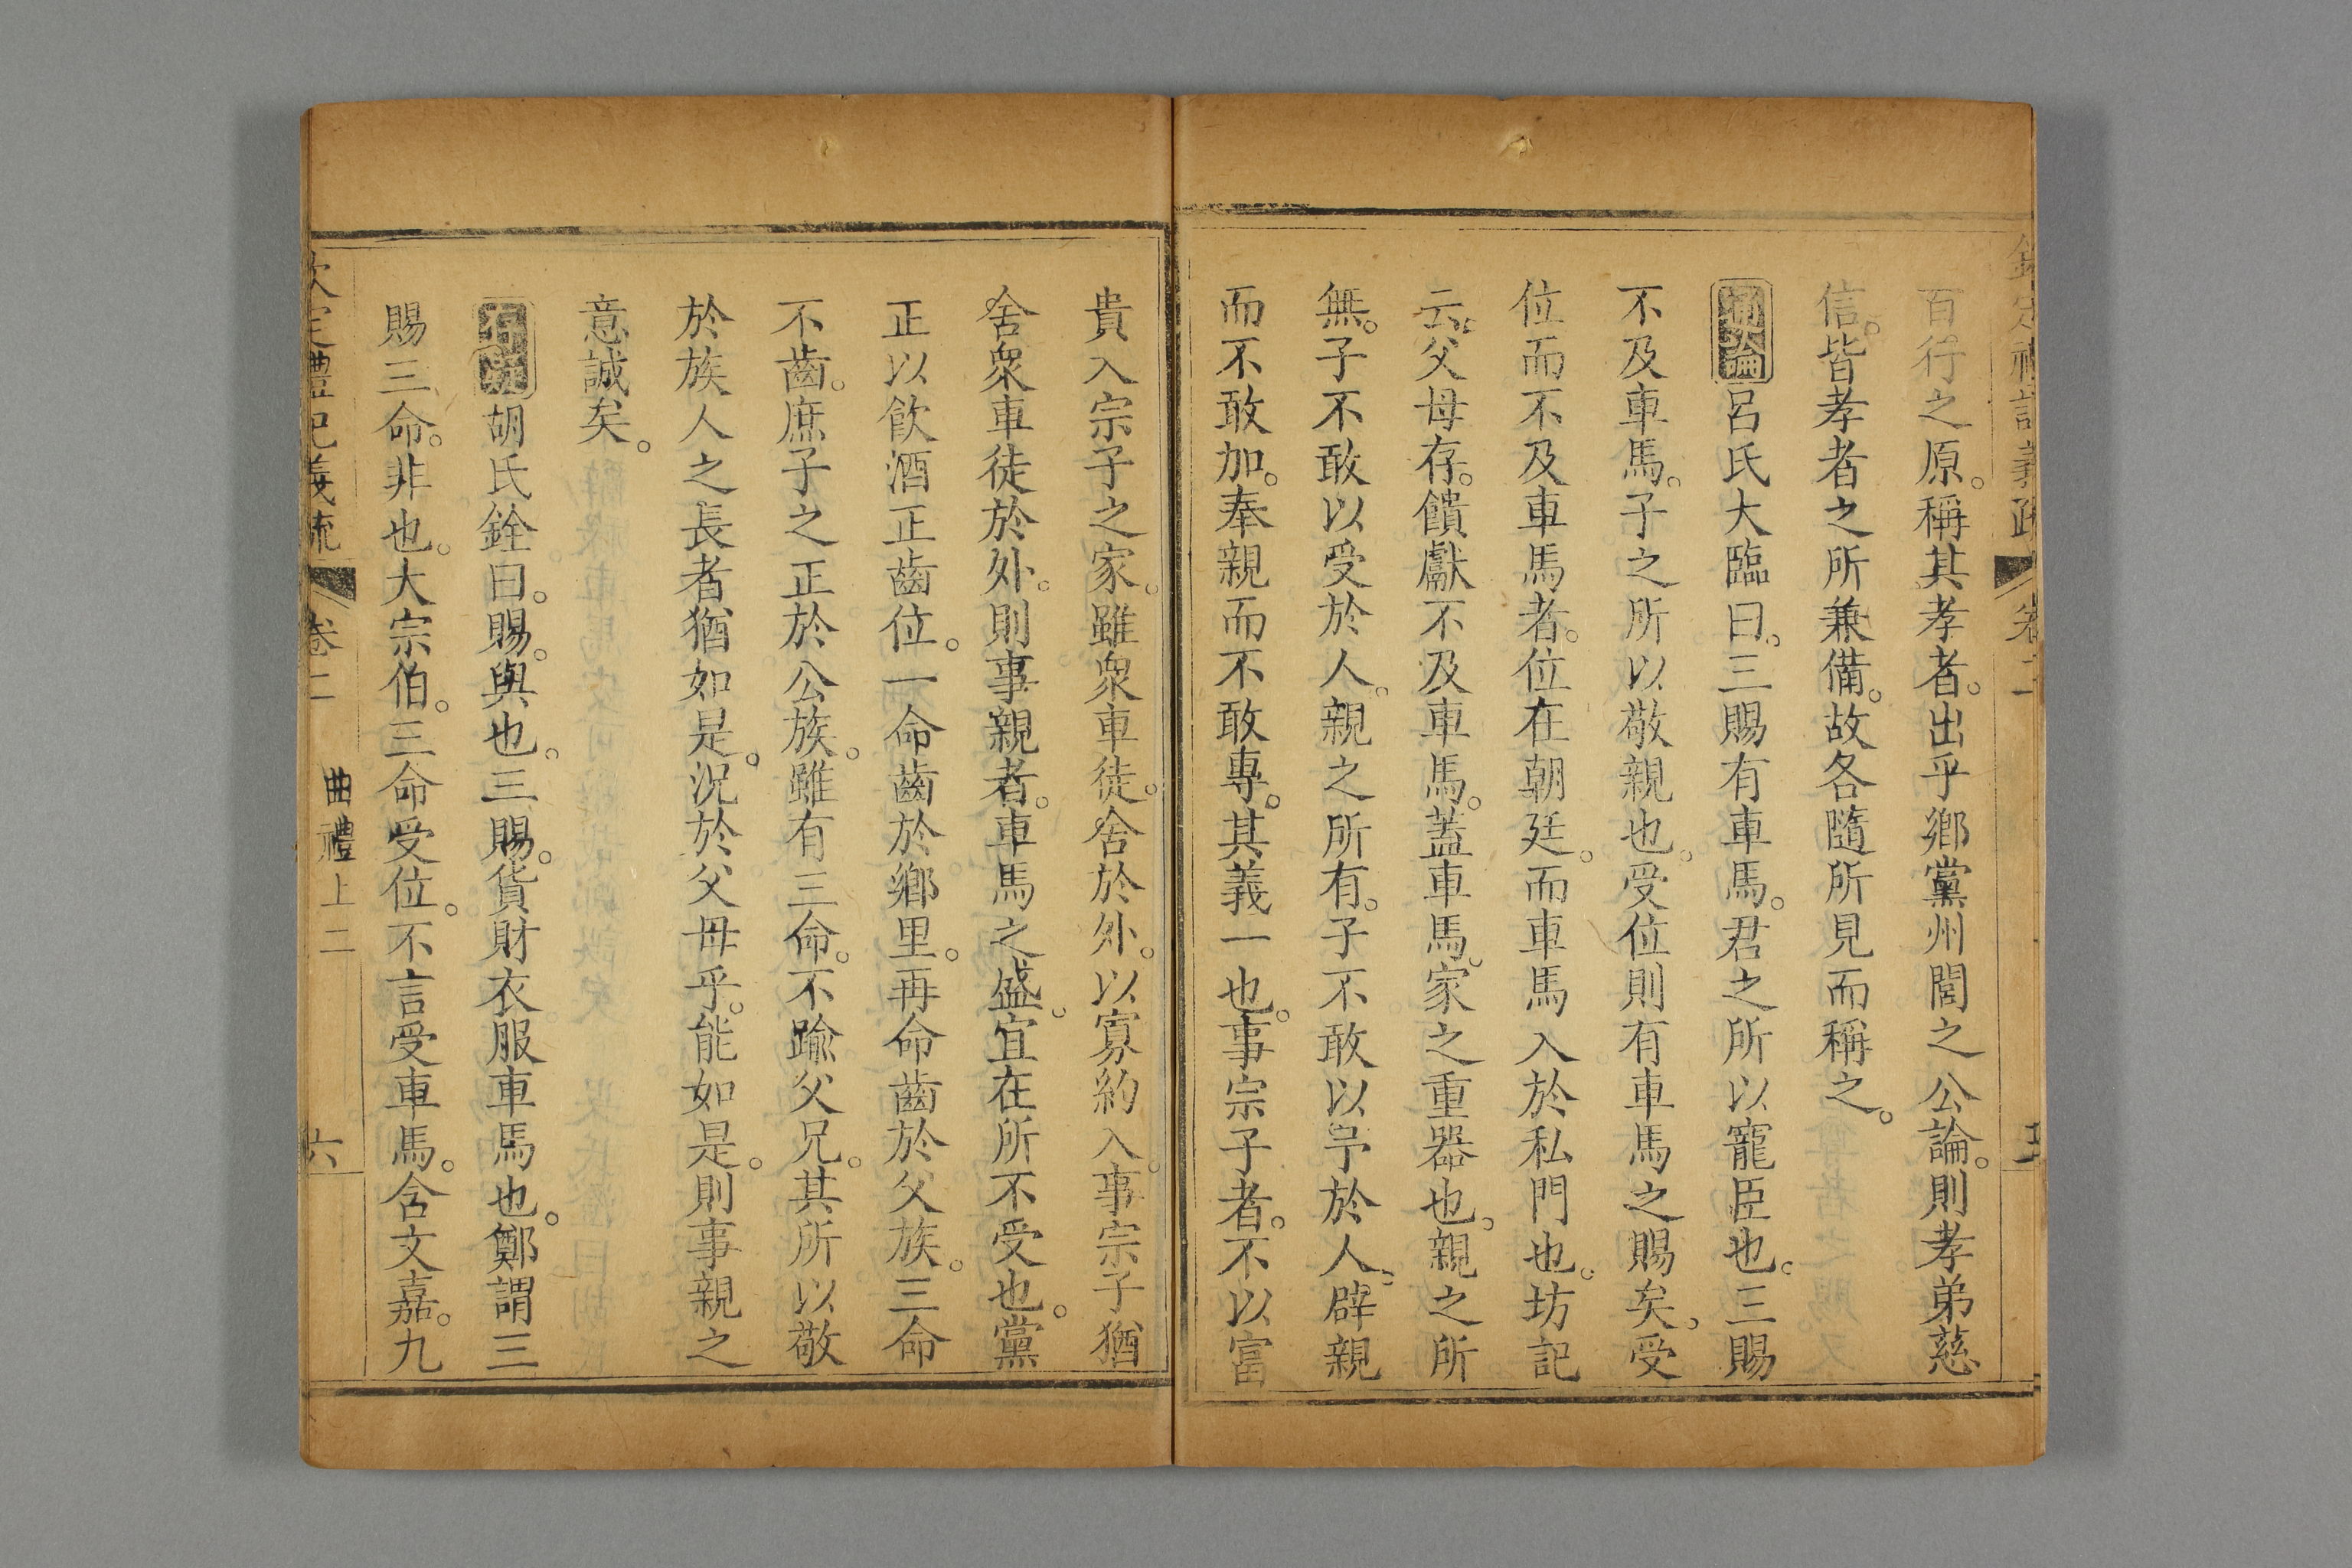 欽定禮記義疏 卷二
百行之原。稱其孝者。出乎鄉黨州閭之公論。則孝弟慈
信。皆孝者之所兼備。故各隨所見而稱之。
通論呂氏大臨曰。三賜有車馬。君之所以寵臣也。三賜
不及車馬。子之所以敬親也。受位則有車馬之賜矣。受
位而不及車馬者。位在朝廷。而車馬入於私門也。坊記
云。父母存。饋獻不及車馬。蓋車馬。家之重器也。親之所
無。子不敢以受於人。親之所有。子不敢以予於人。辟親
而不敢加。奉親而不敢專。其義一也。事宗子者。不以富
貴入宗子之家。雖衆車徒。舍於外。以寡約入。事宗子猶
舍衆車徒於外。則事親者。車馬之盛。宜在所不受也。黨
正以飮酒正齒位。一命齒於鄉里。再命齒於父族。三命
不齒。庶子之正於公族。雖有三命。不踰父兄。其所以敬
於族人之長者猶如是。況於父母乎。能如是。則事親之
意誠矣。
胡氏銓曰。賜。與也。三賜。貨財衣服車馬也。鄭謂三
賜三命。非也。大宗伯。三命受位。不言受車馬。含文嘉。九
欽定禮記義疏 卷二 曲禮上二 六